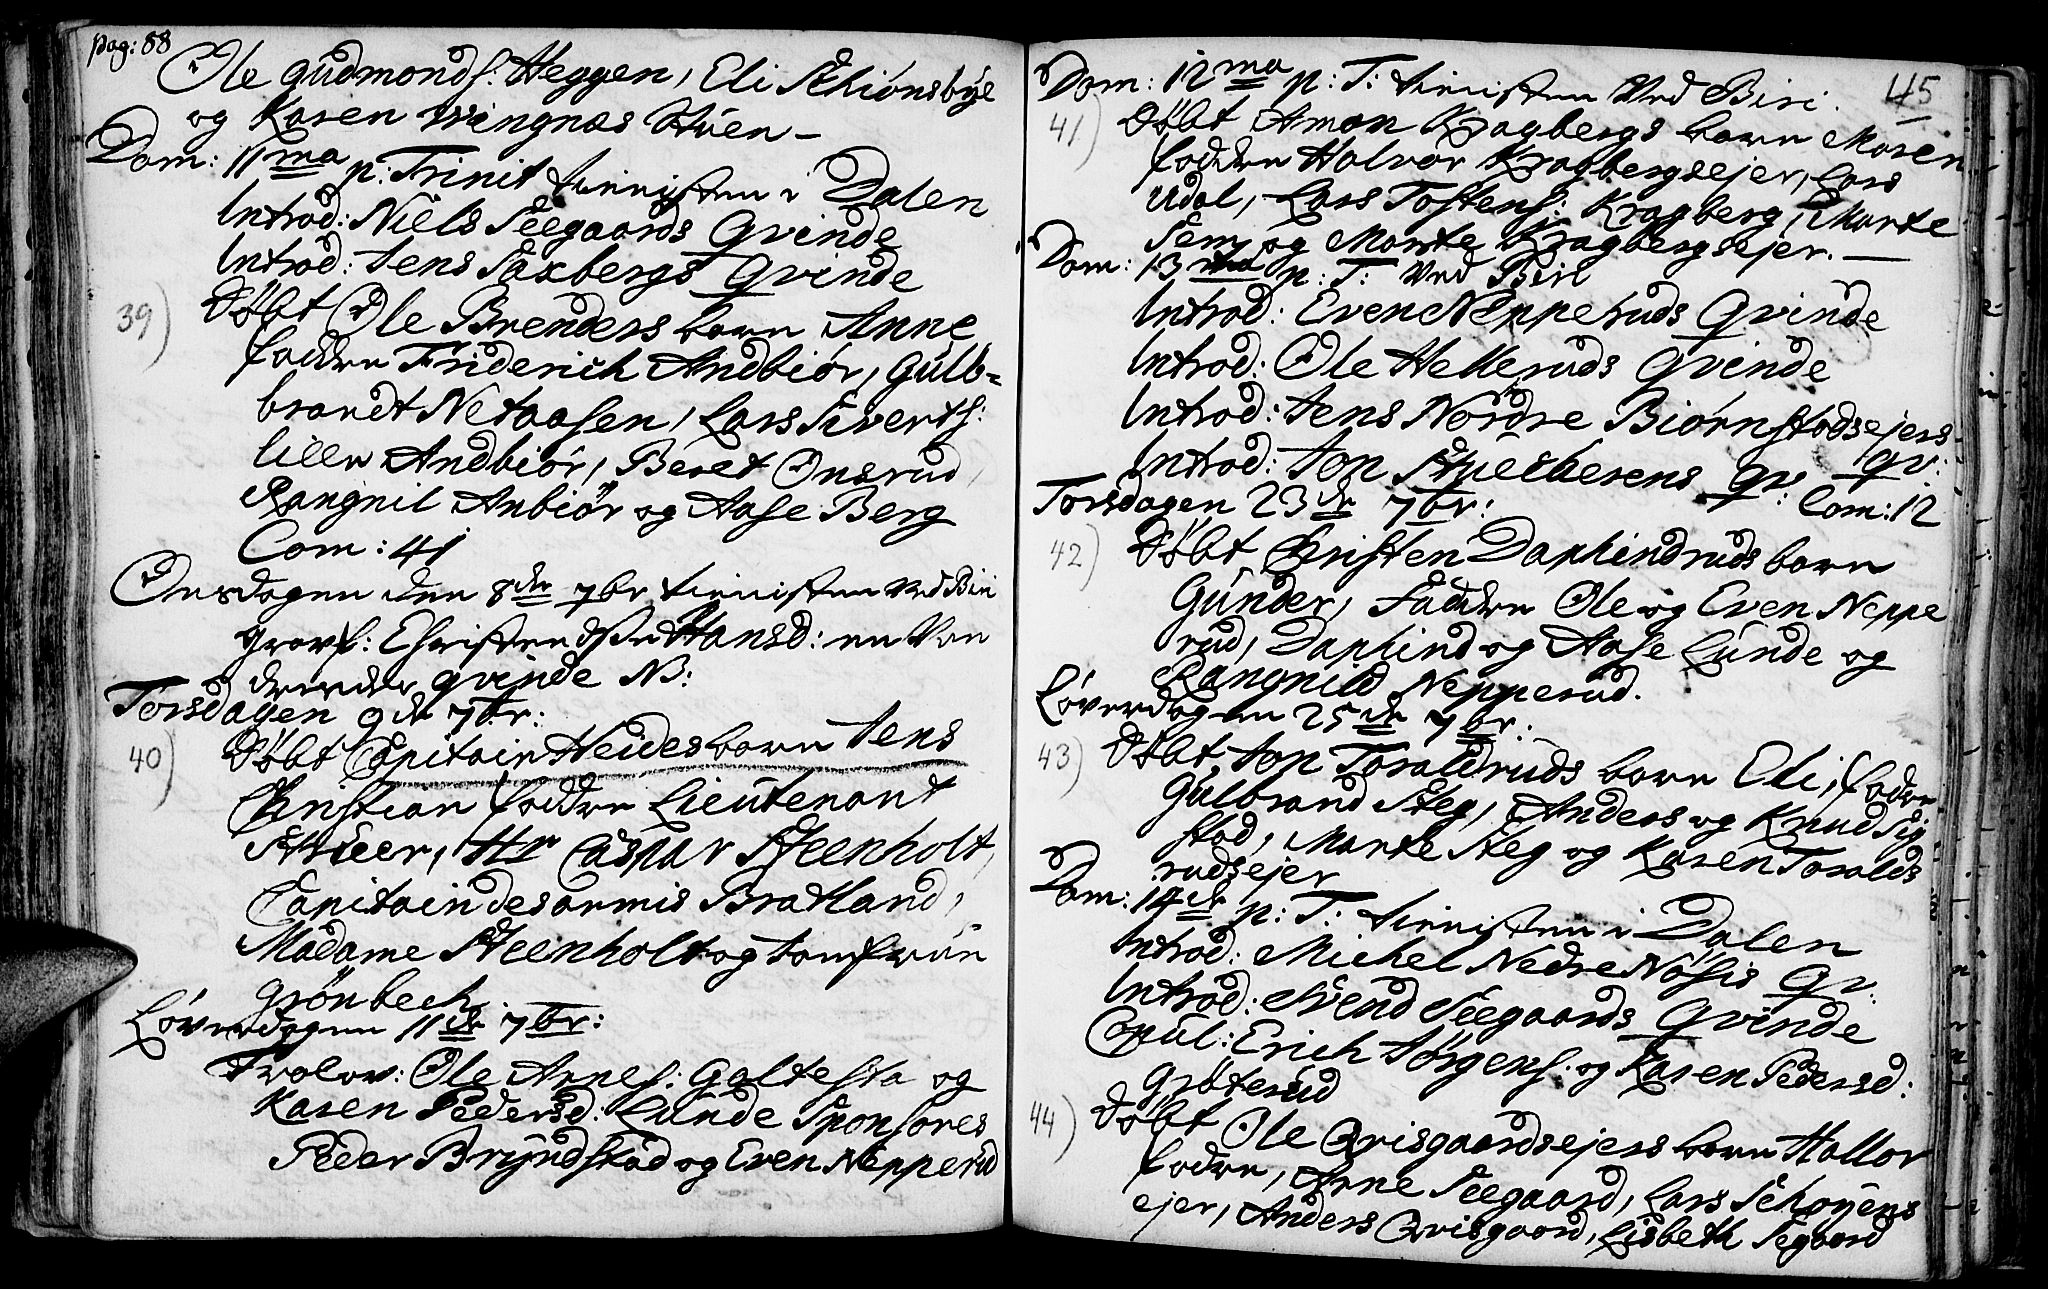 pag: 88
Ole Gudmonds: Heggen, Eli Schiønsbye
og Karen Wingnæs Huen –
Dom: 11ma p: Trinit tienisten i Dalen
Introd: Niels Seegaards Qvinde
Introd: Jens Saxbergs Qvinde
39) Døbt Ole Brenders barn Anne
faddre Friderich Andbiør, Gulb=
brandt Netaasen, Lars Siverts:
lille Andbiør, Beret Onsrud,
Rangnil Anbiør og Aase Berg
Com: 41
Onsdagen den 8de 7br tienisten Ved Biri
Gravf: Christen Hansd: en Van
drende qvinde NB:
Torsdagen 9de 7br:
40) Døbt Capitain Heides barn Jens
Christian faddre Lieutenant
Stüeer, Hr Caspar Steenholt,
Capitain des armis Bratland,
Madame Steenholt og Jomfrue
Grönbech.
Løverdagen 11de 7br:
Trolov: Ole Arnes: Galtesta og
Karen Pedersd: Lunde Sponsores
Peder Bryndstad og Even Nepperud
45
Dom: 12ma p: T: tienisten Ved Biri.
41) Døbt Amon Kragbergs barn Maren
faddre Halvor Kragbergsejer, Lars
Udal, Lars Tostens: Kragberg, Marte
Sem og Marte Kragbergsejer. —
Dom: 13ma p: T: Ved Biri
Introd: Even Nepperuds Qvinde
Introd: Ole Helleruds Qvinde
Introd: Jens Nordre Biørnstadsejers
qv:
Introd: Jon Stuesbersens qv:
Com: 12
Torsdagen 23de 7br:
42) Døbt Christen Daphindruds barn
Gunder, Faddre Ole og Even Neppe
rud, Daphind og Aase Lunde og
Rangnild Nepperud.
Løverdagen 25de 7br:
43) Døbt Jon Toraldruds barn Eli, fadre
Gulbrand Steg, Anders og Knud Sig
stad, Marte Steg og Karen Toralds
rudsejer
Dom: 14de p: T: tienisten i Dalen
Introd: Michel Nedre Nøssis Qv:
Introd: Svend Seegaards Qvinde
Copul: Erich Jørgens: og Karen Pedersd:
Grøterud
44) Døbt Ole Qvisgaardsejers barn Hallor
fadre, Arne Seegaard, Lars Schøyens
ejer, Anders Qvisgaard, Lisbeth Segaard